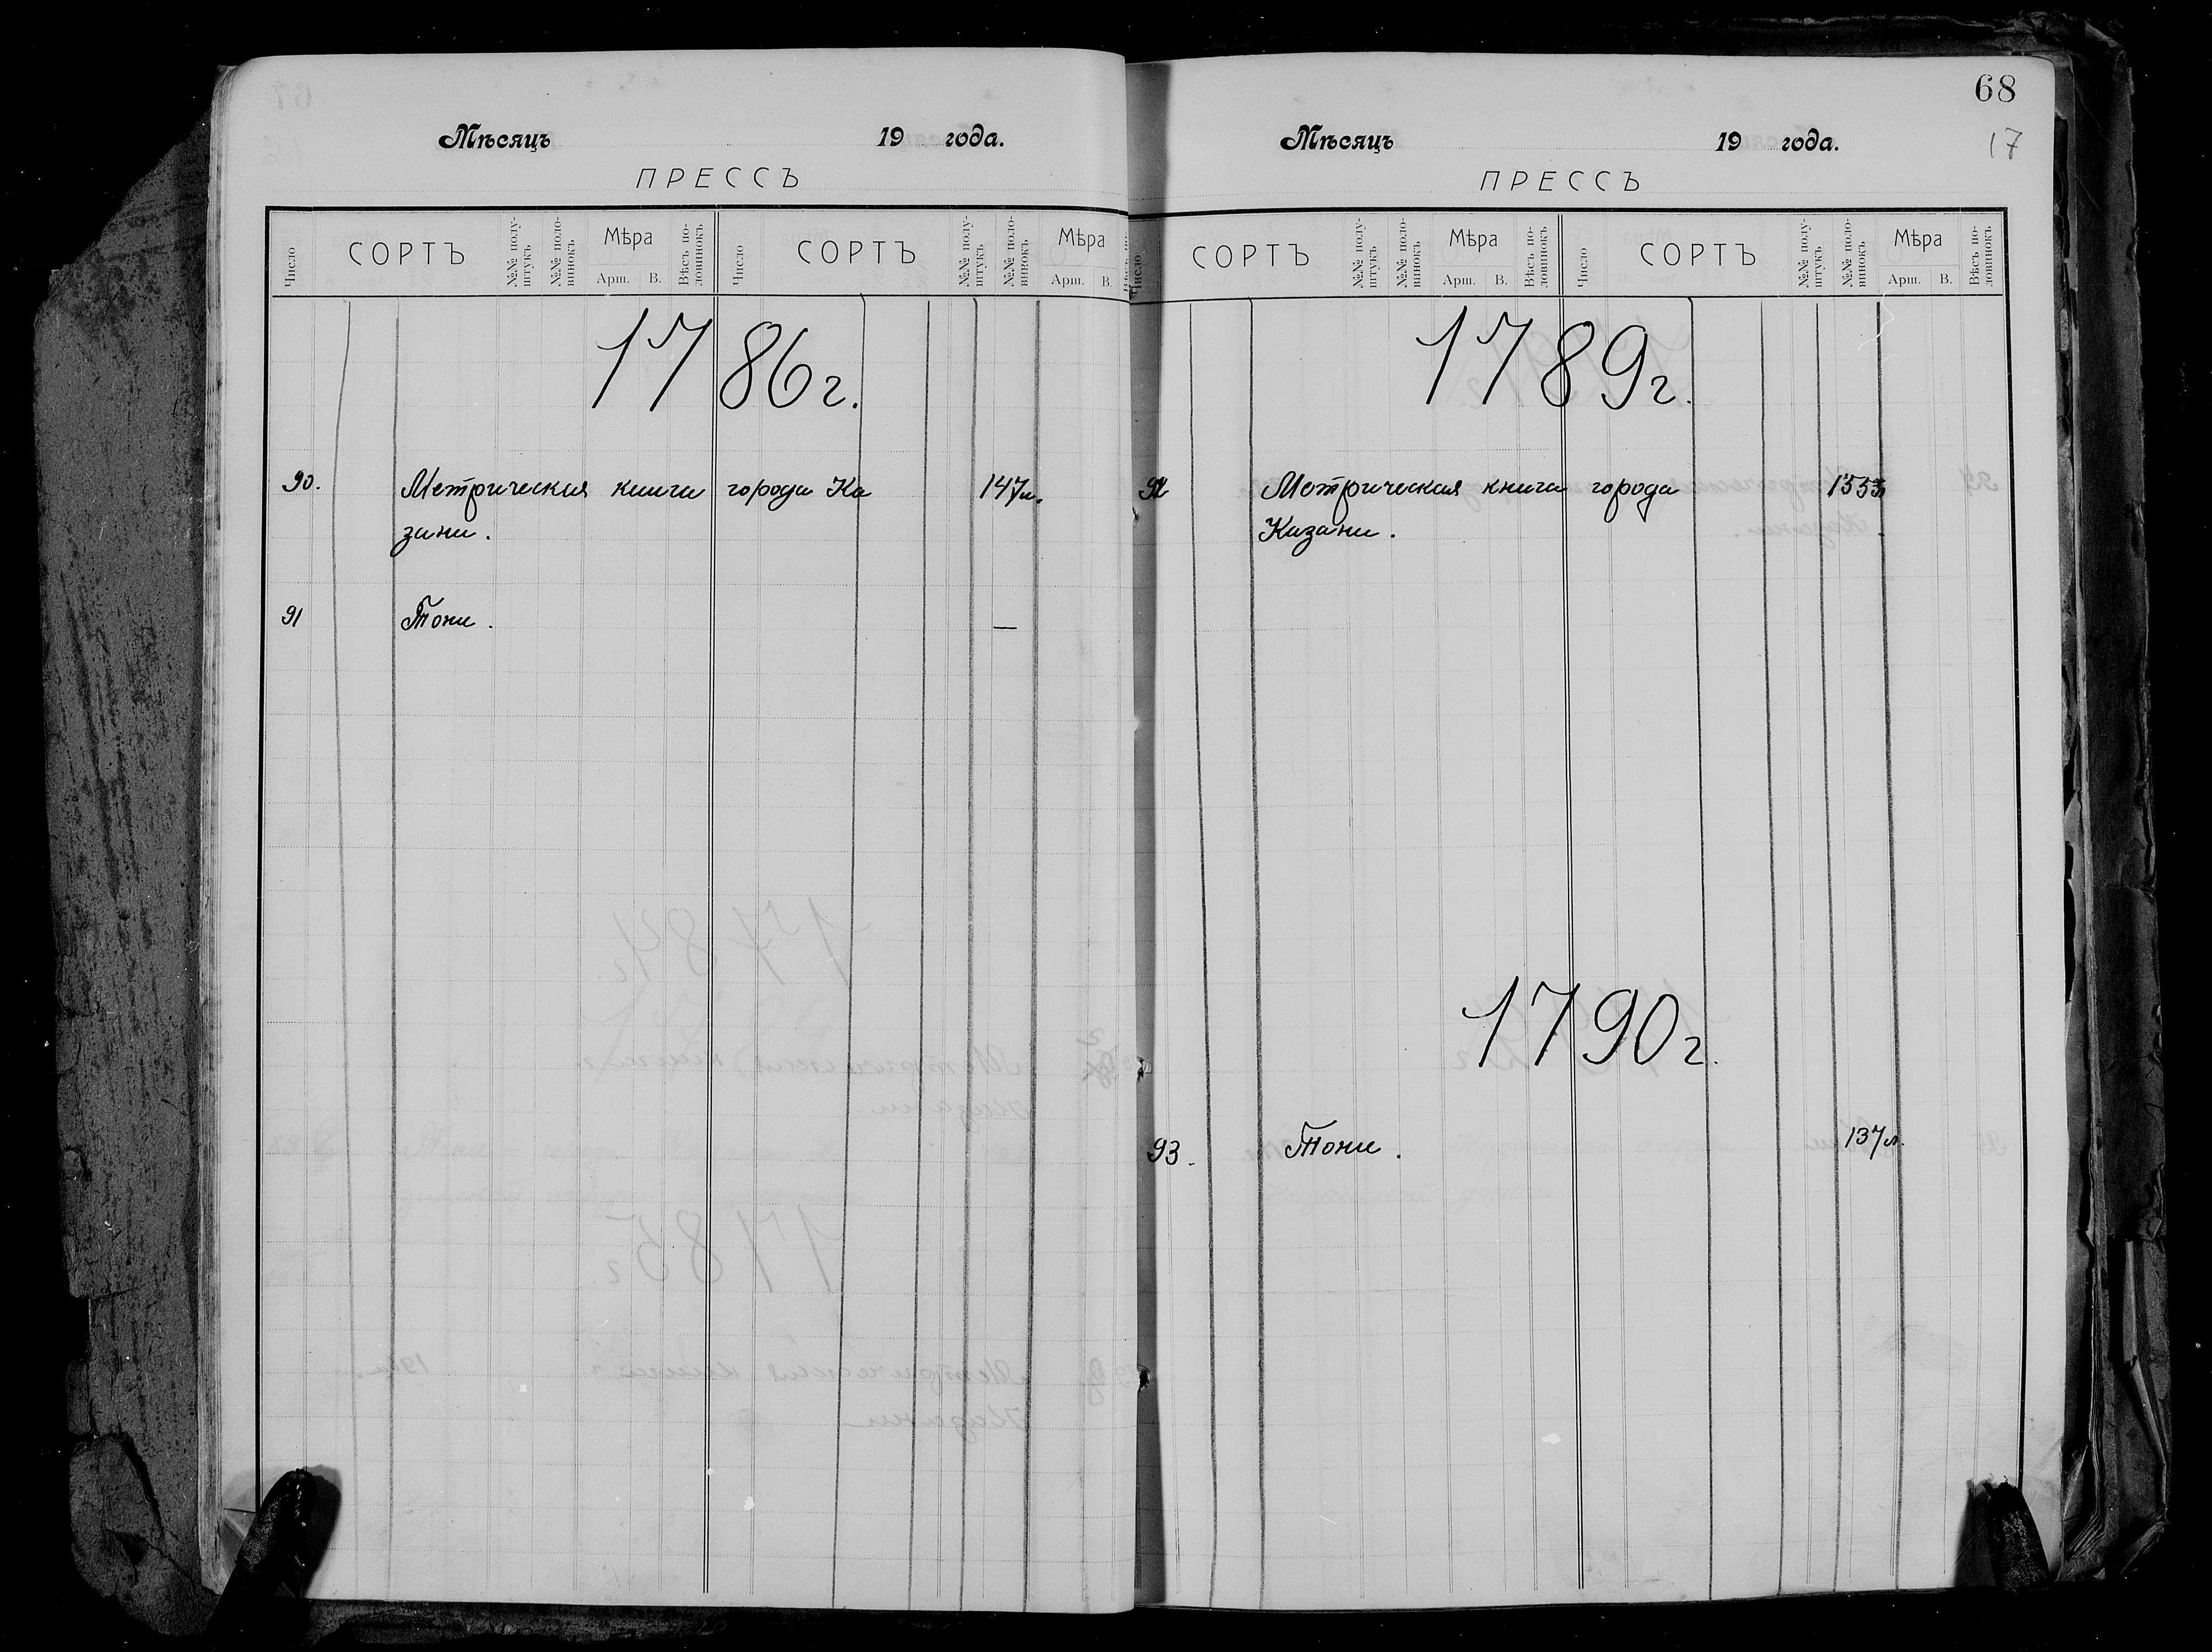 Мѣсяцъ 19 года.
ПРЕССЪ
Число СОРТЪ №№ полу-штукъ №№ поло-винокъ Мѣра Арш. В. Вѣсъ по-ловинокъ Число СОРТЪ №№ полу-штукъ №№ поло-винокъ Мѣра Арш. В.
1786 г.
90. Метрическая книга города Ка 147 л.
зани.
91 Тоже. —
68
17
Мѣсяцъ 19 года.
ПРЕССЪ
Число СОРТЪ №№ полу-штукъ №№ поло-винокъ Мѣра Арш. В. Вѣсъ по-ловинокъ Число СОРТЪ №№ полу-штукъ №№ поло-винокъ Мѣра Арш. В. Вѣсъ по-ловинокъ
1789 г.
92 Метрическая книга города
Казани.
1790 г.
93. Тоже. 137 л.